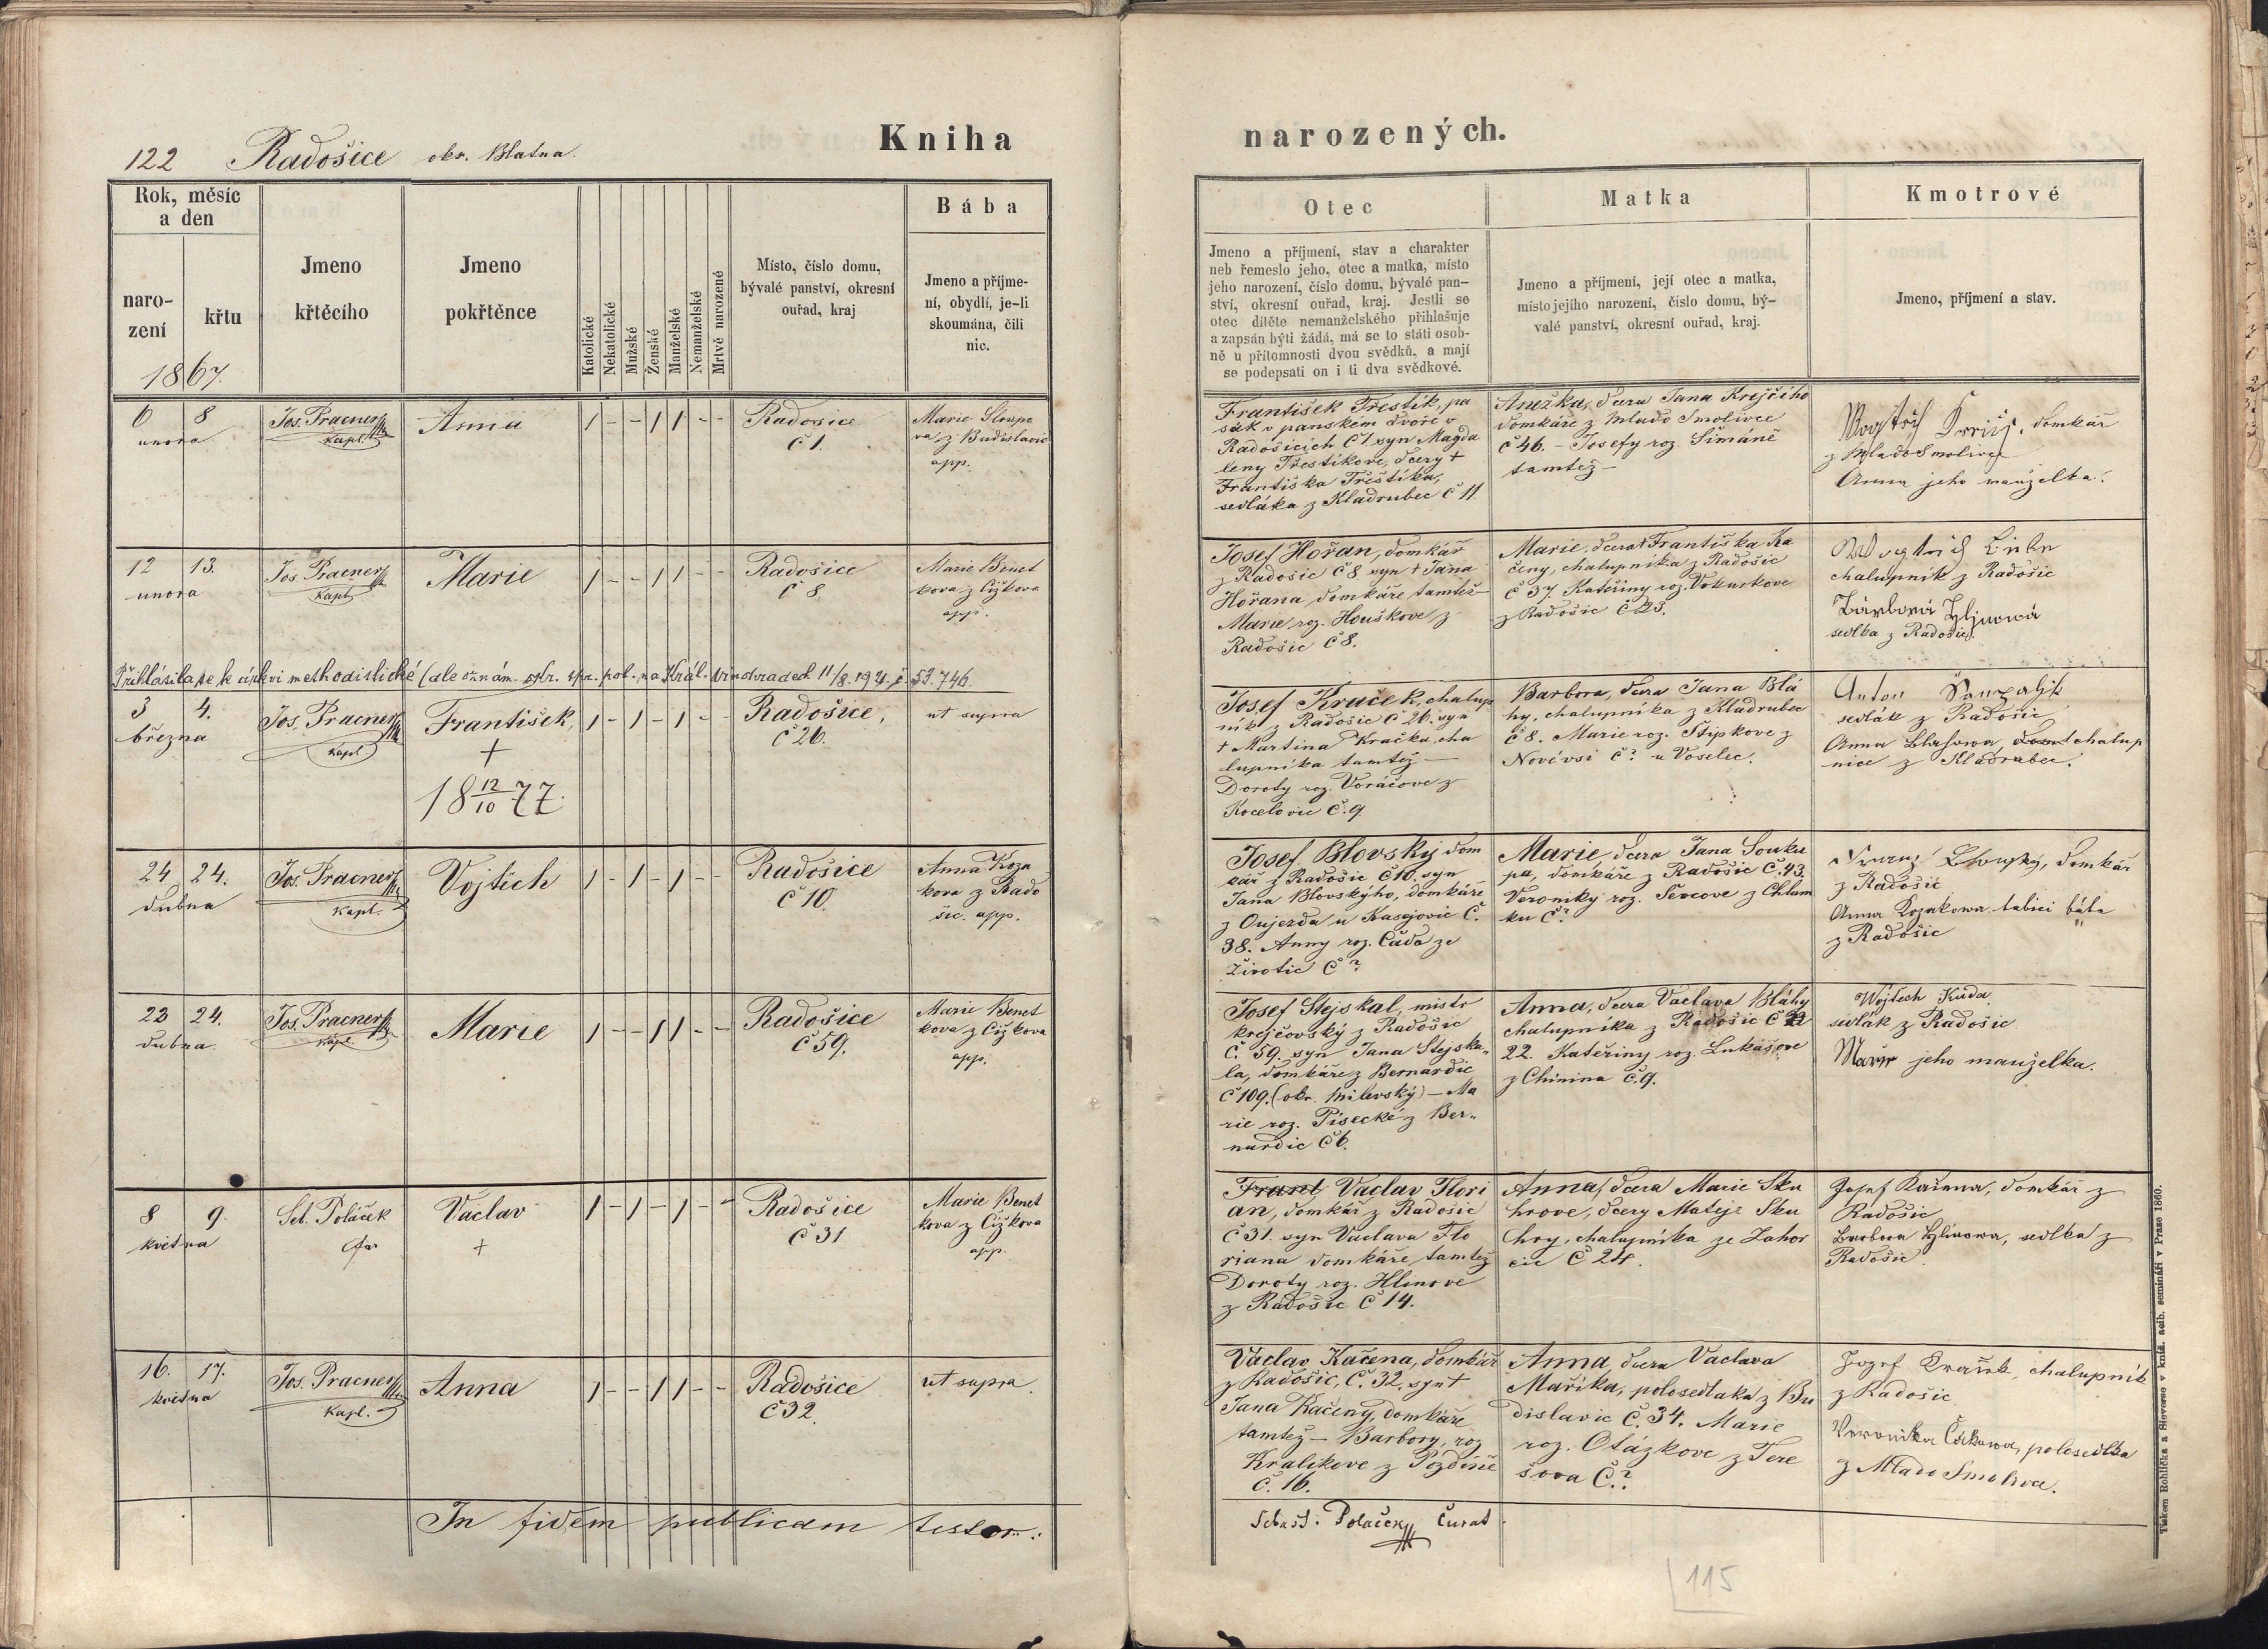 122 Radošice okr. Blatna.
Kniha
narozených.
Rok, měsíc
a den
naro-
zení
křtu
1867.
Jmeno
křtěcího
Jmeno
pokřtěnce
Katolické
Nekatolické
Mužské
Ženské
Manželské
Nemanželské
Mrtvě narozené
Místo, číslo domu,
bývalé panství, okresní
ouřad, kraj
Bába
Jmeno a příjme-
ní, obydlí, je-li
skoumána, čili
nic.
Otec
Jmeno a příjmení, stav a charakter
neb řemeslo jeho, otec a matka, místo
jeho narození, číslo domu, bývalé pan-
ství, okresní ouřad, kraj. Jestli se
otec dítěte nemanželského přihlašuje
a zapsán býti žádá, má se to státi osob-
ně u přítomnosti dvou svědků, a mají
se podepsati on i ti dva svědkové.
Matka
Jmeno a příjmení, její otec a matka,
místo jejího narození, číslo domu, bý-
valé panství, okresní ouřad, kraj.
Kmotrové
Jmeno, příjmení a stav.
6 8
unora
Jos. Pracner
Kapl.
Anna
1 - - 1 1 - -
Radosice
č 1.
Marie Sloupo
va z Budislavic
app.
František Třestik, pa
sák v panskem dvoře v
Radošicích č 1. syn Magda
leny Třestikove, dcery +
Františka Třestika,
sedláka z Kladrubec č 11
Anežka, dcera Jana Krejčiho
domkáře z Mlado Smolivce
č 46. - Josefy roz. Šimáně
tamtéž -
domkář
z Mlado Smolivce
Anna jeho manželka.
12 13.
unora
Jos. Pracner
Kapl.
Marie
1 - - 1 1 - -
Radošice
č 8
Marie Benet
kova z Čižkova
app.
Josef Hořan, domkář
z Radošic č 8. syn + Jana
Hořana domkáře tamtéž -
Marie roz. Houškove z
Radošic č 8.
Marie, dcera + Františka Ka
čeny, chalupníka z Radošic
č 37. Kateřiny roz. Vokurkove
z Radošic č 23.
chalupník z Radošic
Barbora Hlinová
sedlka z Radošic.
Přihlásila se k církvi methodistické (dle oznám. okr. spr. pol. na Král. Vinohradech 11/8. 1921. č. 53.746.
3 4.
března
Jos. Pracner
Kapl.
František,
+
18 12/10 77.
1 - 1 - 1 - -
Radošice,
č 26.
ut supra
Josef Kraček, chalup
ník z Radošic č 26. syn
+ Martina Kračka, cha
lupníka tamtéž -
Doroty roz. Voráčove z
Kocelovic č. 9.
Barbora, dcera Jana Blá
hy, chalupníka z Kladrubec
č 8. Marie roz. Štipkove z
Novévsi č? u Voselec.
Anton
sedlák z Radošic
Anna Blahowa, chalup
nice z Kladrubec.
24 24.
dubna
Jos. Pracner
Kapl.
Vojtěch
1 - 1 - 1 - -
Radošice
č 10.
Anna Koza
kova z Rado
šic. app.
Josef Blovský dom
kář z Radošic č 10. syn
Jana Blovskýho, domkáře
z Oujezda u Kasejovic č.
38. Anny roz. Čada ze
Životic č?
Marie, dcera Jana Souku
pa, domkáře z Radošic č. 43.
Veroniky roz. Ševcove z Chlum
ku č?
Franz Blowský, domkář
z Radošic
Anna Kozakowa bába
z Radošic
23 24.
dubna.
Jos. Pracner
Kapl.
Marie
1 - - 1 1 - -
Radošice
č 59.
Marie Benet
kova z Čižkova
app.
Josef Stejskal, mistr
krejčovský z Radošic
č. 59. syn Jana Stejska-
la, domkáře z Bernardic
č 109. (okr. Milevský) - Ma
rie roz. Písecké z Ber-
nardic č 6.
Anna, dcera Vaclava Bláhy
chalupníka z Radošic č
22. Kateřiny roz. Lukášove
z Chinina č. 9.
Wojtech Kuda
sedlák z Radošic
Marie jeho manželka.
8 9.
května
Seb. Poláček
far
Vaclav
+
1 - 1 - 1 - -
Radošice
č 31
Marie Benet
kova z Čižkova
app.
Frant. Vaclav Flori
an, domkář z Radošic
č 31. syn Vaclava Flo
riana domkáře, tamtéž
Doroty roz. Hlinove
z Radošic č 14.
Anna, dcera Marie Sku
hrove, dcery Matěje Sku
hry, chalupníka ze Zahor
cic č 24.
Josef Kačena, domkář z
Radošic
Barbora Hlinowa, sedlka z
Radošic.
16. 17.
května
Jos. Pracner
Kapl.
Anna
1 - - 1 1 - -
Radošice
č 32.
ut supra.
Václav Kačena, domkář
z Radošic, č. 32, syn +
Jana Kačeny, domkáře
tamtéž - Barbory, roz
Kralikove z Pozdine
č. 16.
Anna, dcera Vaclava
Mařika, polosedlaka z Bu
dislavic č. 34. Marie
roz. Otázkove z Tere
šova č?
Jozef chalupník
z Radošic
Veronika polosedlka
z Mlado Smolivce.
In fidem publicam testor:
Sebast: Poláček Curat.
115
Tiskem Rohlíčka a Sieversa v kníž. acib. semináři v Praze 1860.